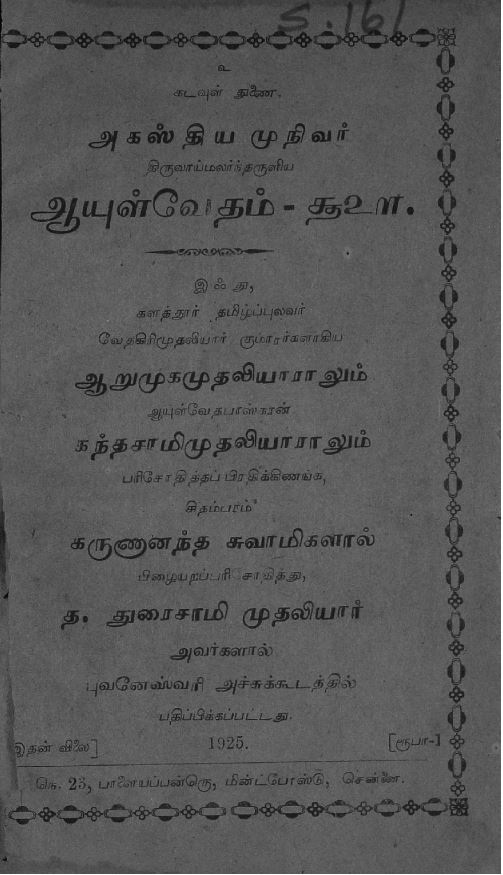 S. 161
உ
கடவுள் துணை.
அகஸ்திய முநிவர்
திருவாய்மலர்ந்தருளிய
ஆயுள்வேதம் - ௬௨௱.
இஃது,
களத்தூர் தமிழ்ப்புலவர்
வேதகிரிமுதலியார் குமாரர்களாகிய
ஆறுமுகமுதலியாராலும்
ஆயுள்வேதபாஸ்கரன்
கந்தசாமிமுதலியாராலும்
பரிசோதித்தப் பிரதிக்கிணங்க,
சிதம்பரம்
கருணானந்த சுவாமிகளால்
பிழையறப்பரிசோதித்து,
த. துரைசாமி முதலியார்
அவர்களால்
புவனேஸ்வரி அச்சுக்கூடத்தில்
பதிப்பிக்கப்பட்டது.
இதன் விலை] 1925. [ரூபா-]
நெ. 23, பாளையப்பன்தெரு, மின்ட்போஸ்டு, சென்னை.